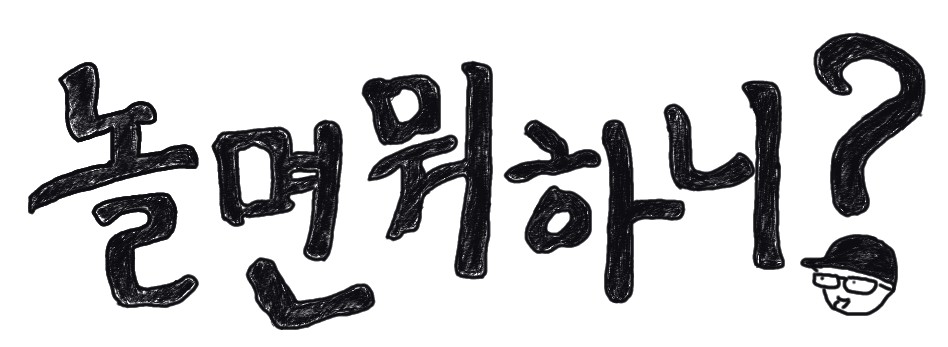 놀면 뭐하니?